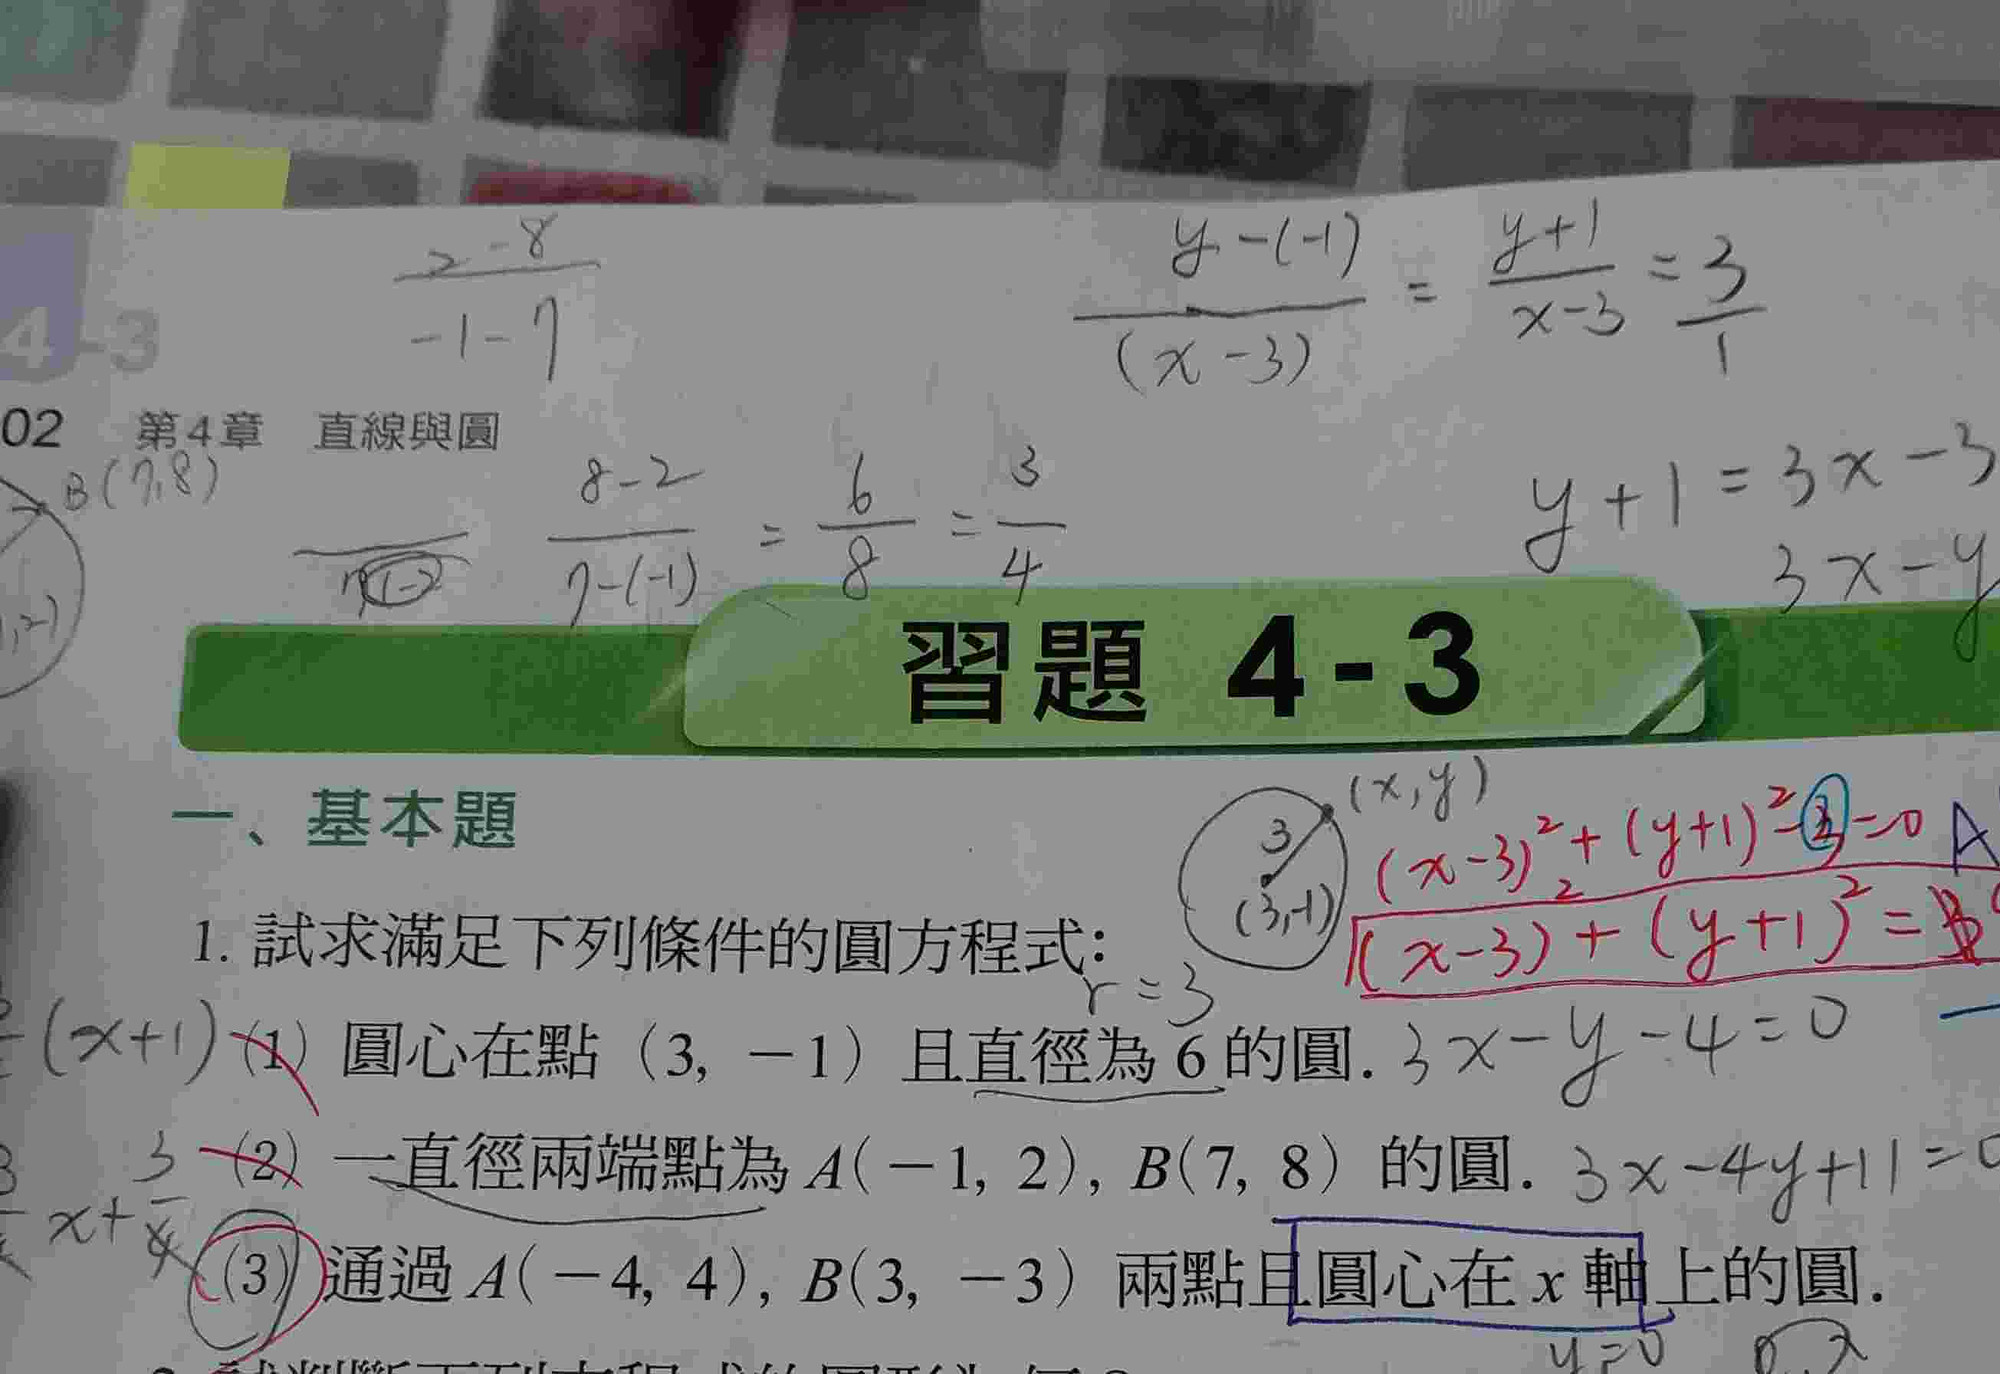 2-8
-1-7
y-(-1)
(x-3)
= y+1
x-3
= 3
1
4-3
02 第4章 直線與圓
B(7,8)
8-2
7-(-1)
= 6
8
= 3
4
y+1=3x-3
3x-y
習題 4-3
一、基本題
(x,y)
3
(3,-1)
(x-3)²+(y+1)²-3=0
A
(x-3)²+(y+1)²=
1. 試求滿足下列條件的圓方程式:
r=3
(x+1)
(1) 圓心在點 (3, -1) 且直徑為 6 的圓.
3x-y-4=0
(2) 一直徑兩端點為 A(-1, 2), B(7, 8) 的圓.
3x-4y+11=0
x+3
4
(3) 通過 A(-4, 4), B(3, -3) 兩點且圓心在 x 軸上的圓.
y=0